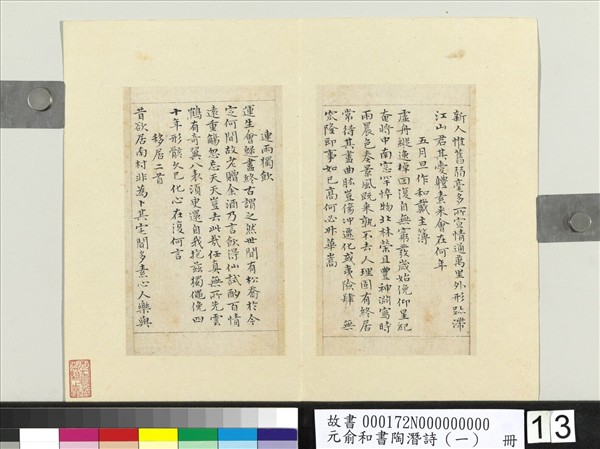 新人惟舊弱毫多所宣情通萬里外形跡滯
江山君其愛體素来會在何年
五月旦作和戴主簿
虛舟縱逸棹回復自無窮發歲始俛仰星紀
奄將中南窓罕悴物北林榮且豐神淵寫時
雨晨色奏景風既来孰不去人理固有終居
常待其盡曲肱豈傷沖遷化或夷險肆 無
窊隆即事如已高何必升華嵩
連雨獨飲
運生會歸盡終古謂之然世間有松喬於今
定何間故老贈余酒乃言飲得仙試酌百情
遠重觴忽忘天天豈去此哉任真無所先雲
鶴有奇翼八表須臾還自我抱茲獨僶俛四
十年形骸久已化心在復何言
移居二首
昔欲居南村非為卜其宅聞多素心人樂與
故書 000172N000000000
元俞和書陶潛詩(一) 冊
13